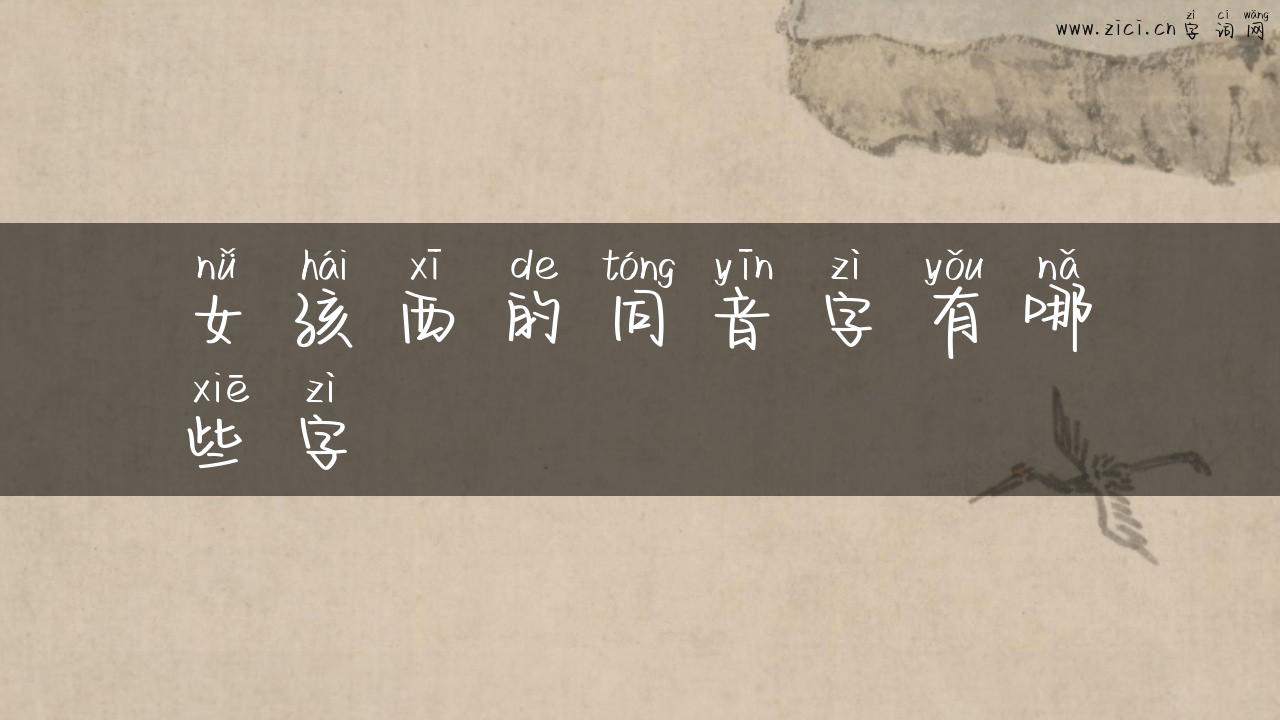 zì cí wǎng
www.zici.cn 字 词 网
nǚ hái xī de tóng yīn zì yǒu nǎ
女 孩 西 的 同 音 字 有 哪
xiē zì
些 字